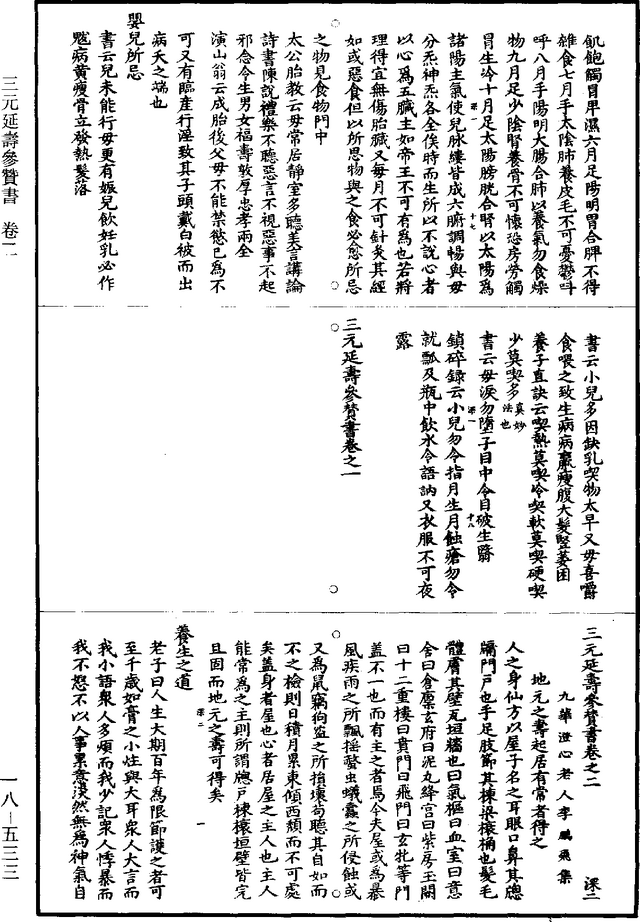 飢飽觸胃卑濕六月足陽明胃合脾不得
雜食七月手太陰肺養皮毛不可憂鬱叫
呼八月手陽明大腸合肺以養氣勿食燥
物九月足少陰腎養骨不可懷恐房勞觸
冒生冷十月足太陽膀胱合腎以太陽為
諸陽主氣使兒脉縷皆成六腑調暢與母
分炁神炁各全俟時而生所以不說心者
以心為五臟主如帝王不可有為也若將
理得宜無傷胎臟又每月不可針灸其經
如或惡食但以所思物與之食必愈所忌
之物見食物門中
太公胎教云母常居靜室多聽美言講論
詩書陳說禮樂不聽惡言不視惡事不起
邪念令生男女福壽敦厚忠孝兩全
演山翁云成胎後父母不能禁慾已為不
可又有臨產行淫致其子頭戴白被而出
病夭之端也
嬰兒所忌
書云兒未能行母更有娠兒飲妊乳必作
魃病黃瘦骨立發熱髮落
書云小兒多因缺乳喫物太早又母喜嚼
食喂之致生病病羸瘦腹大髮豎萎困
養子直訣云喫熱莫喫冷喫軟莫喫硬喫
少莫喫多真妙法也
書云母淚勿墮子目中令目破生翳
鎖碎録云小兒勿令指月生月蝕瘡勿令
就瓢及瓶中飲水令語訥又衣服不可夜
露
三元延壽參贊書卷之一
三元延壽參贊書卷之二 深二
九華澄心老人李鵬飛集
地元之壽起居有常者得之
人之身仙方以屋子名之耳眼口鼻其牕
牖門戶也手足肢節其棟梁榱桷也髮毛
體膚其壁瓦垣牆也曰氣樞曰血室曰意
舍曰倉廩玄府曰泥丸絳宮曰紫房玉闕
曰十二重樓曰賁門曰飛門曰玄牝等門
盖不一也而有主之者焉今夫屋或為暴
風疾雨之所飄搖螫虫蟻蠹之所侵蝕或
又為鼠竊狗盜之所損壞苟聽其自如而
不之檢則日積月累東傾西頹而不可處
矣盖身者屋也心者居屋之主人也主人
能常為之主則所謂牕戶棟榱垣壁皆完
且固而地元之壽可得矣
深二 一
養生之道
老子曰人生大期百年為限節護之者可
至千歲如膏之小炷與大耳衆人大言而
我小語衆人多煩而我少記衆人悸暴而
我不怒不以人事累意淡然無為神氣自
三元延壽參贊書 卷二
一八—五三三